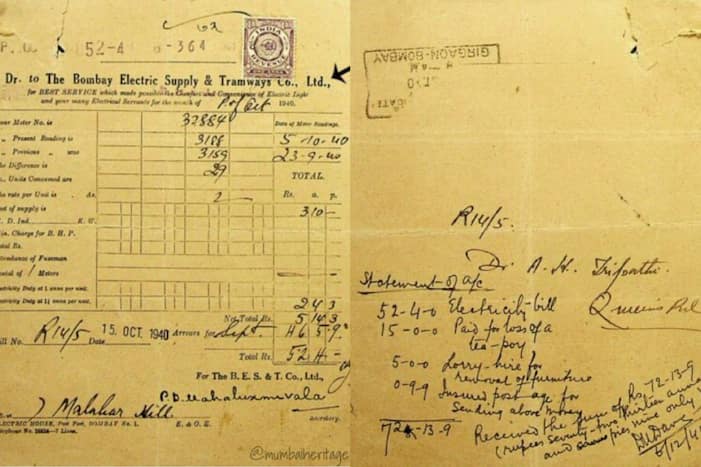 62
52-4 6-364
INDIA
REVENUE
ONE ANNA
Dr. to The Bombay Electric Supply & Tramways Co., Ltd.,
for BEST SERVICE which made possible the Comfort and Convenience of Electric Light
and your many Electrical Servants for the month of Oct 1940.
our Meter No. is 32884 Date of Meter Readings.
„ Present Reading is 3188 5-10-40
„ Previous „ was 3159 23-9-40
he Difference is 29
„ Units Consumed are TOTAL.
he rate per Unit is As. 2 Rs. a. p.
ost of supply is 3 10 -
. D. Ind. K. W.
in. Charge for B. H. P.
otal Rs.
ttendance of Fuseman
ental of 1 Meters
lectricity Duty at 1 anna per unit.
lectricity Duty at 1½ anna per unit. 2 4 3
Net Total Rs. 5 14 3
ill No. R14/5 Date 15 OCT 1940 Arrears for Sept 46 5 9
Total Rs. 52 4 -
For The B. E. S. & T. Co., Ltd.,
Malabar Hill
Secretary.
LECTRIC HOUSE, Fort Post, BOMBAY No. 1. E. & O. E.
elephone No. 7 Lines.
GIRGAON-BOMBAY
R14/5.
Dr. A. H. Tripathi.
Statement of a/c
52-4-0 Electricity bill
15-0-0 Paid for loss of a
tea-poy
5-0-0 Lorry-hire for
removal of furniture
0-9-9 Insured postage for
sending above money
72-13-9
Received the sum of Rs 72-13-9
(rupees seventy-two thirteen annas
and pies nine only
@mumbaiheritage